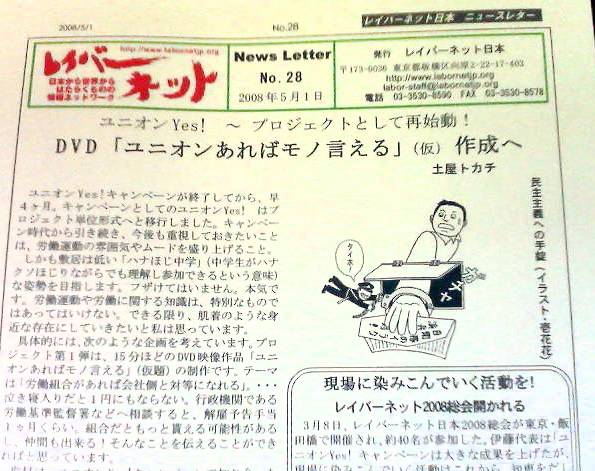 2008/5/1
No.28
レイバーネット日本 ニュースレター
http://www.labornetjp.org
レイバー
ネット
日本から世界から
はたらくものの
情報ネットワーク
News Letter
No. 28
2008年5月1日
発行 レイバーネット日本
〒173-0036 東京都板橋区向原2-22-17-403
http://www.labornetjp.org
labor-staff@labornetjp.org
電話 03-3530-8590 FAX 03-3530-8578
ユニオンYes! ～ プロジェクトとして再始動!
DVD「ユニオンあればモノ言える」(仮) 作成へ
土屋トカチ
ユニオンYes!キャンペーンが終了してから、早
4ヶ月。キャンペーンとしてのユニオンYes! はプ
ロジェクト単位形式へと移行しました。キャンペー
ン時代から引き続き、今後も重視しておきたいこと
は、労働運動の雰囲気やムードを盛り上げること。
しかも敷居は低い「ハナほじ中学」(中学生がハナ
クソほじりながらでも理解し参加できるという意味)
な姿勢を目指します。フザけてはいません。本気で
す。労働運動や労働に関する知識は、特別なもので
はあってはいけない。できる限り、肌着のような身
近な存在にしていきたいと私は思っています。
具体的には、次のような企画を考えています。プ
ロジェクト第1弾は、15分ほどのDVD映像作品「ユニ
オンあればモノ言える」(仮題)の制作です。テーマ
は「労働組合があれば会社側と対等になれる」・・・
泣き寝入りだと1円にもならない。行政機関である
労働基準監督署などへ相談すると、解雇予告手当
1ヶ月くらい。組合だともっと貰える可能性がある
し、仲間も出来る!そんなことを伝えることができ
ればと思っています。
タイホ!
ガチャ
民主主義への手錠（イラスト・壱花花）
現場に染みこんでいく活動を!
レイバーネット2008総会開かれる
3月8日、レイバーネット日本2008総会が東京・飯
田橋で開催され、約40名が参加した。伊藤代表は「ユ
ニオンYes! キャンペーンは大きな成果を上げたが、